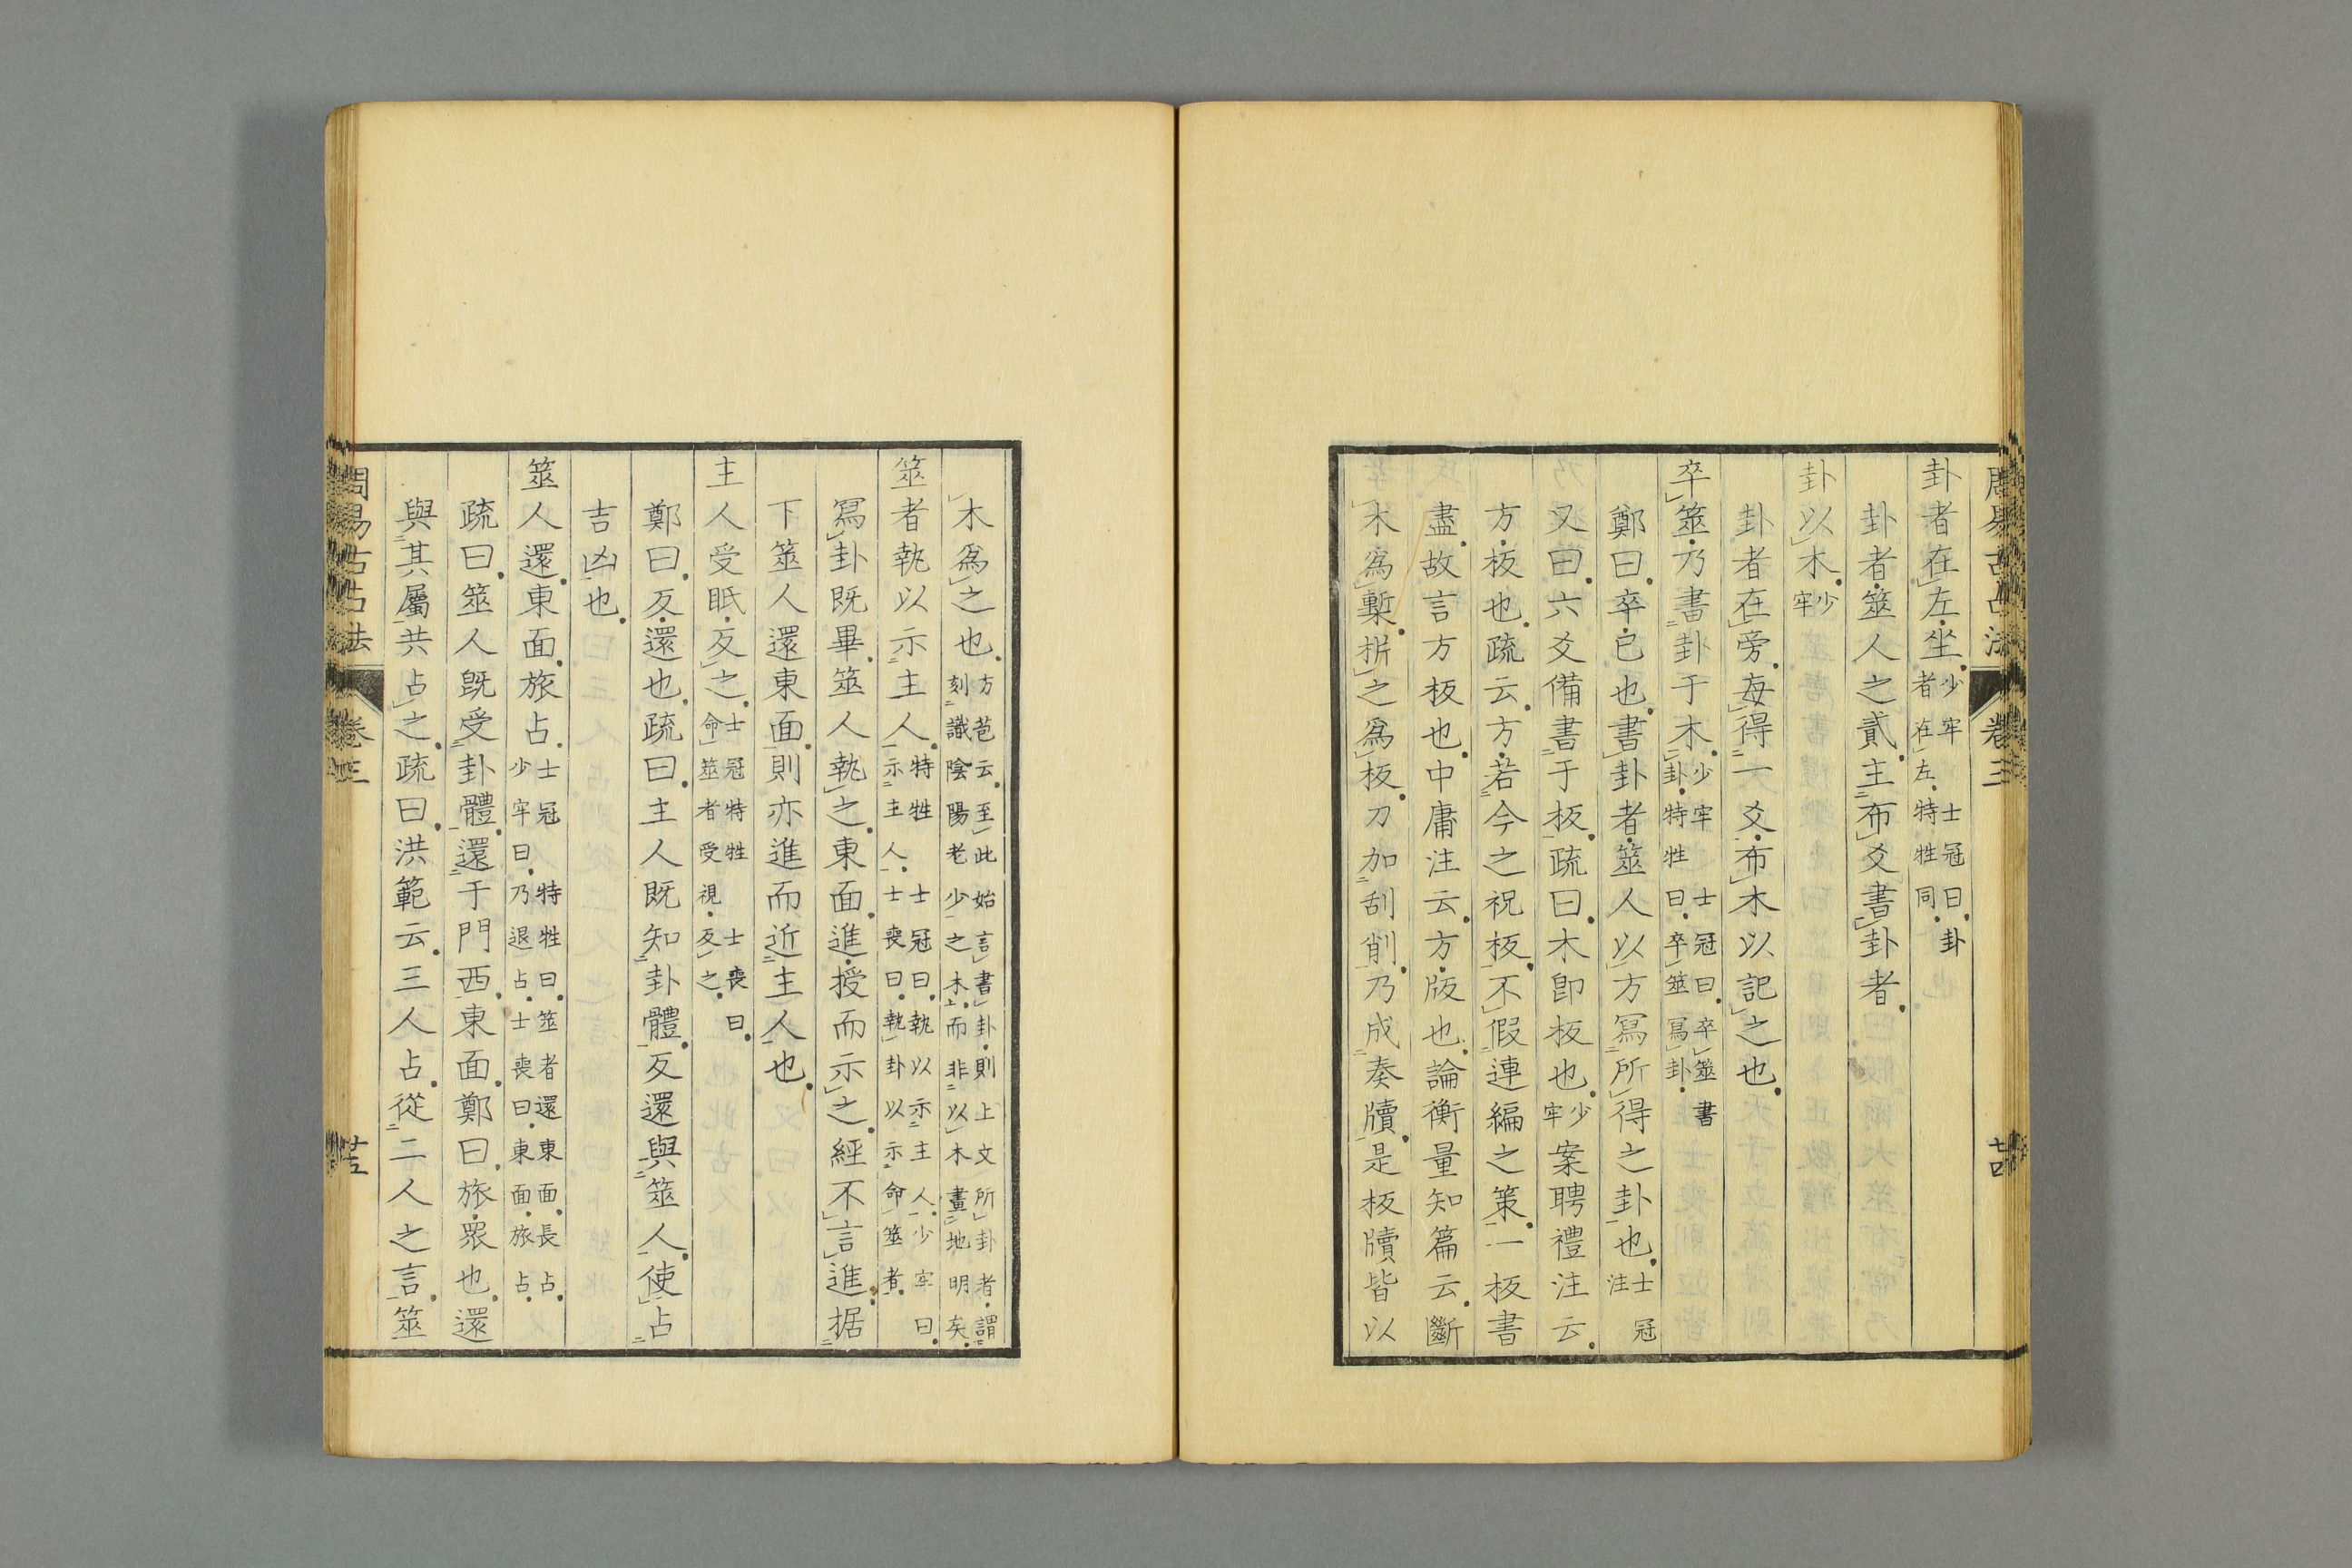 周易古占法　卷三　廿四
卦者在左坐。少牢　士冠曰。卦者在左。特牲同。
卦者。筮人之貳。主布爻書卦者。
卦以木。少牢
卦者在旁。每得一爻。布木以記之也。
卒筮。乃書卦于木。少牢　士冠曰。卒筮書卦。特牲曰。卒筮寫卦。
鄭曰。卒。已也。書卦者。筮人以方寫所得之卦也。士冠注
又曰。六爻備書于板。疏曰。木卽板也。少牢案聘禮注云。
方。板也。疏云。方。若今之祝板。不假連編之策。一板書
盡。故言方板也。中庸注云。方。版也。論衡量知篇云。斷
木爲槧。㭊之爲板。刀加刮削。乃成奏牘。是板牘皆以
木爲之也。方苞云。至此始言書卦。則上文所卦者。謂刻識陰陽老少之木。而非以木畫地明矣。
筮者執以示主人。特牲　士冠曰。執以示主人。少牢曰。示主人。士喪曰。執卦以示命筮者。
寫卦既畢。筮人執之。東面。進。授而示之。經不言進。据
下筮人還東面。則亦進而近主人也。
主人受眡。反之。士冠特牲　士喪曰。命筮者受視。反之。
鄭曰。反。還也。疏曰。主人既知卦體。反還與筮人。使占
吉凶也。
筮人還。東面。旅占。士冠　特牲曰。筮者還東面。長占。少牢曰。乃退占。士喪曰。東面。旅占。
疏曰。筮人既受卦體。還于門西。東面。鄭曰。旅。眾也。還
與其屬共占之。疏曰。洪範云。三人占。從二人之言。筮
周易古占法　卷三　廿五